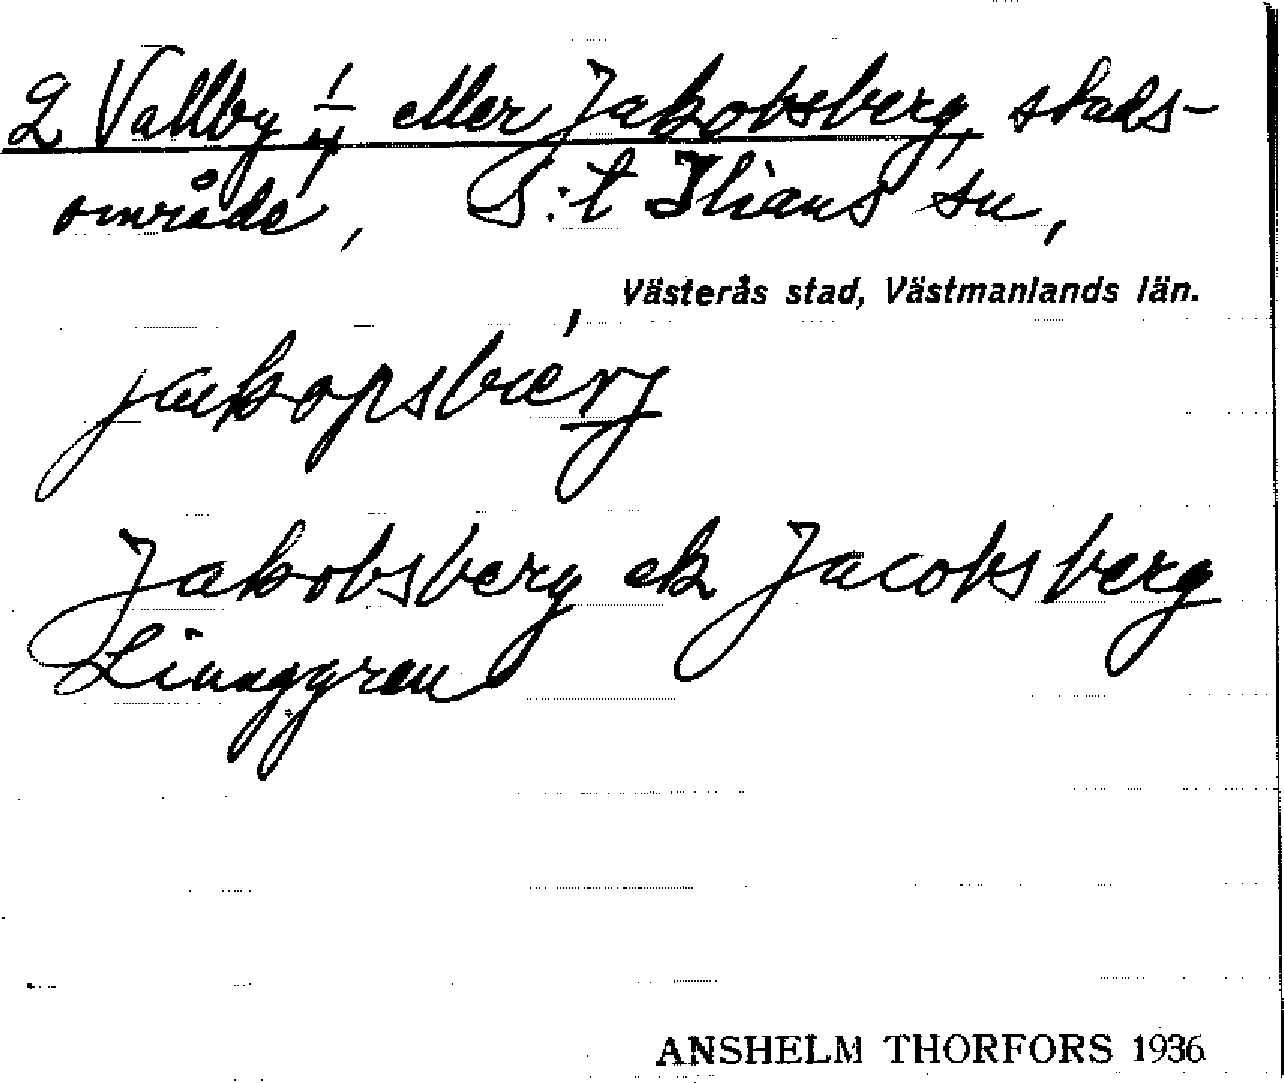 2 Vallby 1/4 eller Jakobsberg, stads-
område, S:t Ilians sn,
Västerås stad, Västmanlands län.
jakopsbærj
Jakobsberg ek Jacobsberg
Linnggren
ANSHELM THORFORS 1936